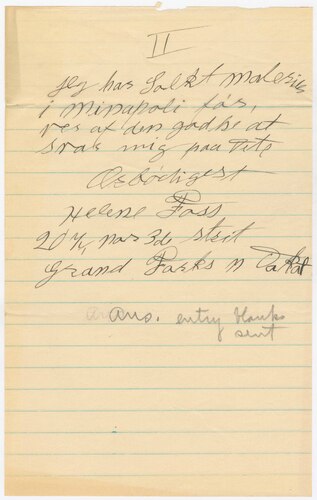 II
Jeg har Solkt malerier
i Minapoli før,
ves af den godhe at
svak mig paa Tits
Ærbödigest
Helene Foss
20½ nor 3de street
Grand Forks n Dakot
Ans. entry blanks
sent